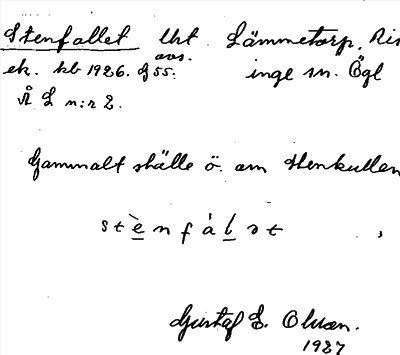 Stenfallet Urt Lämmetorp, Ris
avs.
ek. kb 1926. g 55. inge sn. Ögl
Å L n:r 2.
Gammalt ställe ö. om Stenkullen
s t è n f à l ə t
Gustaf E. Olsson.
1927